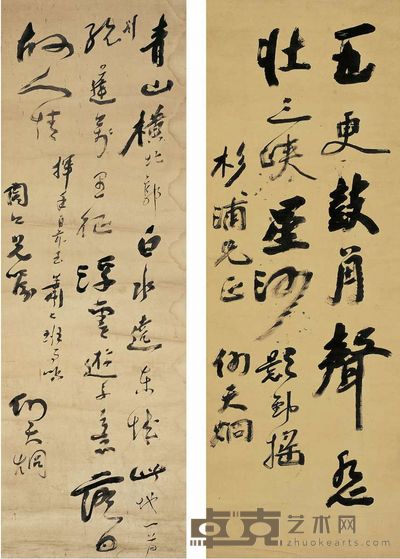 五更鼓角聲悲
壯三峽星河影動搖
杉浦兄正 何天烱
青山橫北郭白水遶東城此地一為
別孤蓬萬里征浮雲遊子意落日
故人情揮手自茲去蕭々班馬鳴
兄屬 何天烱
卓克艺术网
www.zhuokearts.com